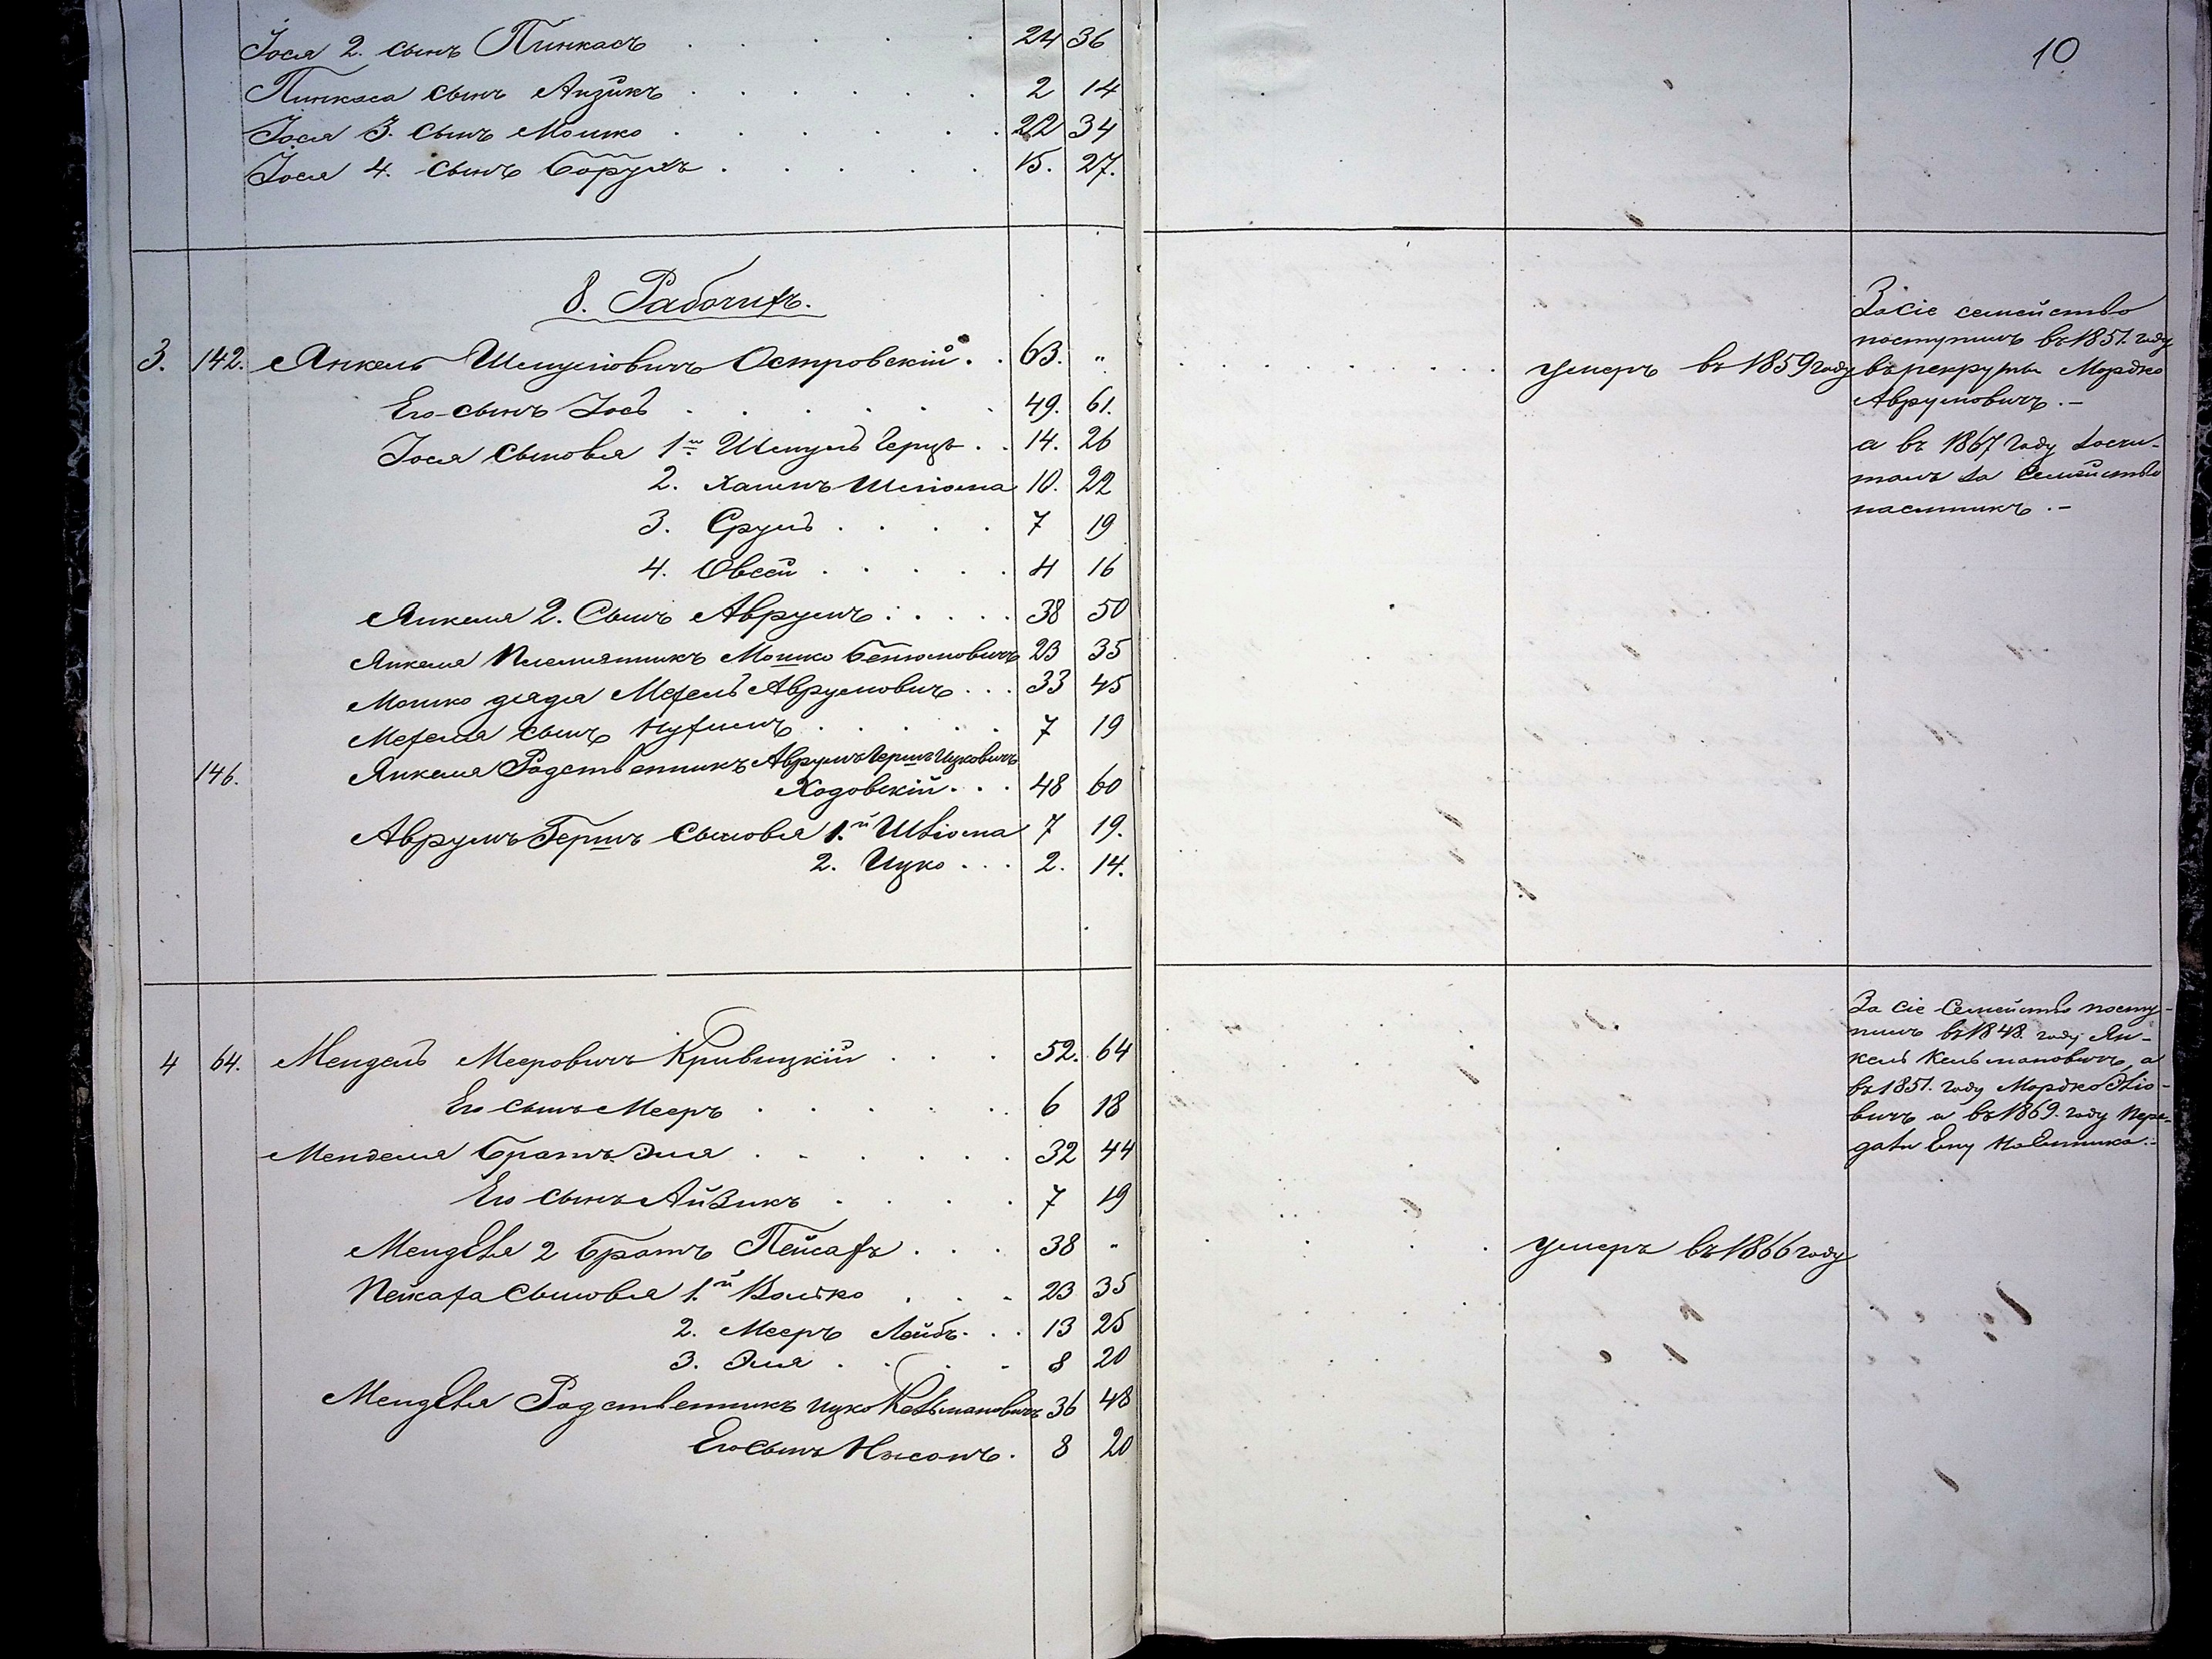 10
Іося 2. сынъ Пинкасъ 24 36
Пинкаса сынъ Айзикъ 2 14
Іося 3. сынъ Мошко 22 34
Іося 4. сынъ Борухъ 15. 27.
8. Рабочихъ.
3. 142. Янкель Шмуліовичъ Островскій. 63. " умеръ въ 1859 году
Его сынъ Іось 49. 61.
Іося сыновья 1й Шмуль Герцъ 14. 26
2. Хаимъ Шліома 10. 22
3. Сруль 7 19
4. Овсей 4 16
Янкеля 2. Сынъ Аврумъ 38 50
Янкеля Племянникъ Мошко Беніомовичъ 23 35
Мошко дядя Мехель Аврумовичъ 33 45
Мехеля сынъ Нухимъ 7 19
146. Янкеля Родственникъ Аврумъ Гершъ Ицковичъ
Ходовскій 48 60
Аврумъ Гершъ сыновья 1.й Шліома 7 19.
2. Ицко 2. 14.
За сіе семейство
поступилъ въ 1851. году
въ рекруты Мордко
Аврумовичъ.-
а въ 1867 году
за Семейство
4 64. Мендель Мееровичъ Кривицкій 52. 64
Его сынъ Мееръ 6 18
Менделя Братъ Эля 32 44
Его сынъ Айзикъ 7 19
Менделя 2 Братъ Пейсахъ 38 " умеръ въ 1866 году
Пейсаха Сыновья 1.й Волько 23 35
2. Мееръ Лейбъ 13 25
3. Эля 8 20
Менделя Родственникъ Ицко Кельмановичъ 36 48
Его сынъ Нисонъ. 8 20
За сіе Семейство посту-
пилъ въ 1848. году Ян-
кель Кельмановичъ, а
въ 1851. году Мордко Эліо-
вичъ а въ 1869. году